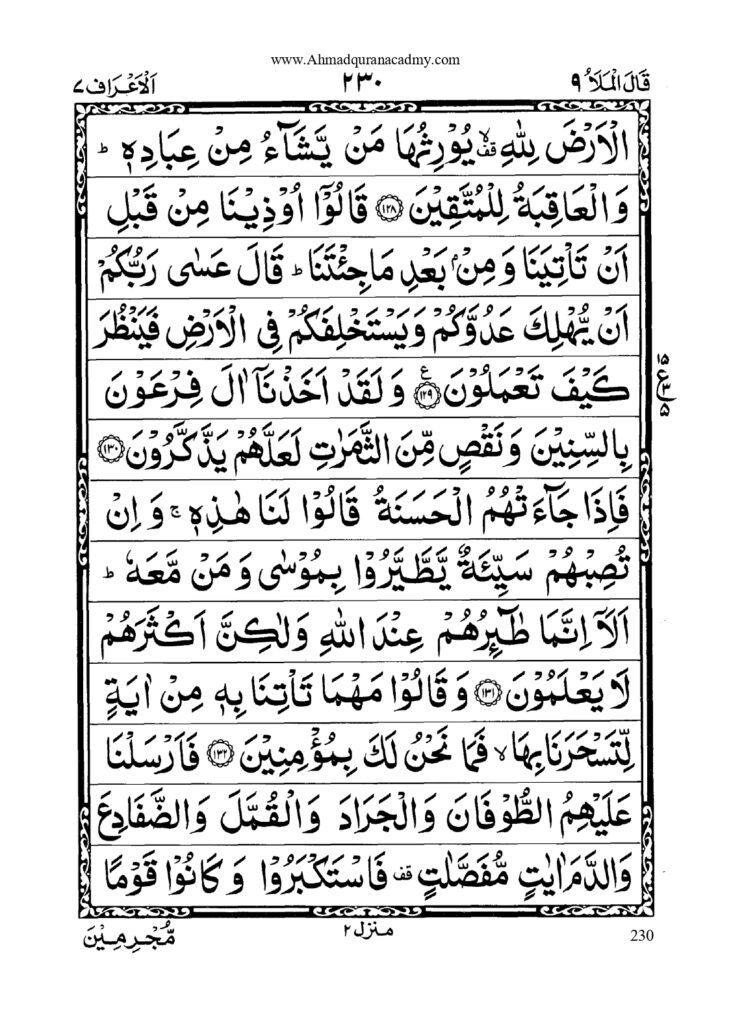 www.Ahmadquranacadmy.com
قَالَ الْمَلَاُ ۹
۲۳۰
اَلْاَعْرَاف ۷
الْاَرْضَ لِلّٰهِ ۙقف يُوْرِثُهَا مَنْ يَّشَآءُ مِنْ عِبَادِهٖ ؕ
وَالْعَاقِبَةُ لِلْمُتَّقِيْنَ ﴿۱۲۸﴾ قَالُوْٓا اُوْذِيْنَا مِنْ قَبْلِ
اَنْ تَاْتِيَنَا وَمِنْۢ بَعْدِ مَا جِئْتَنَا ؕ قَالَ عَسٰى رَبُّكُمْ
اَنْ يُّهْلِكَ عَدُوَّكُمْ وَيَسْتَخْلِفَكُمْ فِى الْاَرْضِ فَيَنْظُرَ
كَيْفَ تَعْمَلُوْنَ ﴿۱۲۹﴾ ع وَلَقَدْ اَخَذْنَآ اٰلَ فِرْعَوْنَ
۱۵ ع ۳ ۵
بِالسِّنِيْنَ وَنَقْصٍ مِّنَ الثَّمَرٰتِ لَعَلَّهُمْ يَذَّكَّرُوْنَ ﴿۱۳۰﴾
فَاِذَا جَآءَتْهُمُ الْحَسَنَةُ قَالُوْا لَنَا هٰذِهٖ ۚ وَاِنْ
تُصِبْهُمْ سَيِّئَةٌ يَّطَّيَّرُوْا بِمُوْسٰى وَمَنْ مَّعَهٗ ؕ
اَلَآ اِنَّمَا طٰٓئِرُهُمْ عِنْدَ اللّٰهِ وَلٰكِنَّ اَكْثَرَهُمْ
لَا يَعْلَمُوْنَ ﴿۱۳۱﴾ وَقَالُوْا مَهْمَا تَاْتِنَا بِهٖ مِنْ اٰيَةٍ
لِّتَسْحَرَنَا بِهَا ۙ فَمَا نَحْنُ لَكَ بِمُؤْمِنِيْنَ ﴿۱۳۲﴾ فَاَرْسَلْنَا
عَلَيْهِمُ الطُّوْفَانَ وَالْجَرَادَ وَالْقُمَّلَ وَالضَّفَادِعَ
وَالدَّمَ اٰيٰتٍ مُّفَصَّلٰتٍ قف فَاسْتَكْبَرُوْا وَكَانُوْا قَوْمًا
مُّجْرِمِيْنَ
منزل ۲
230